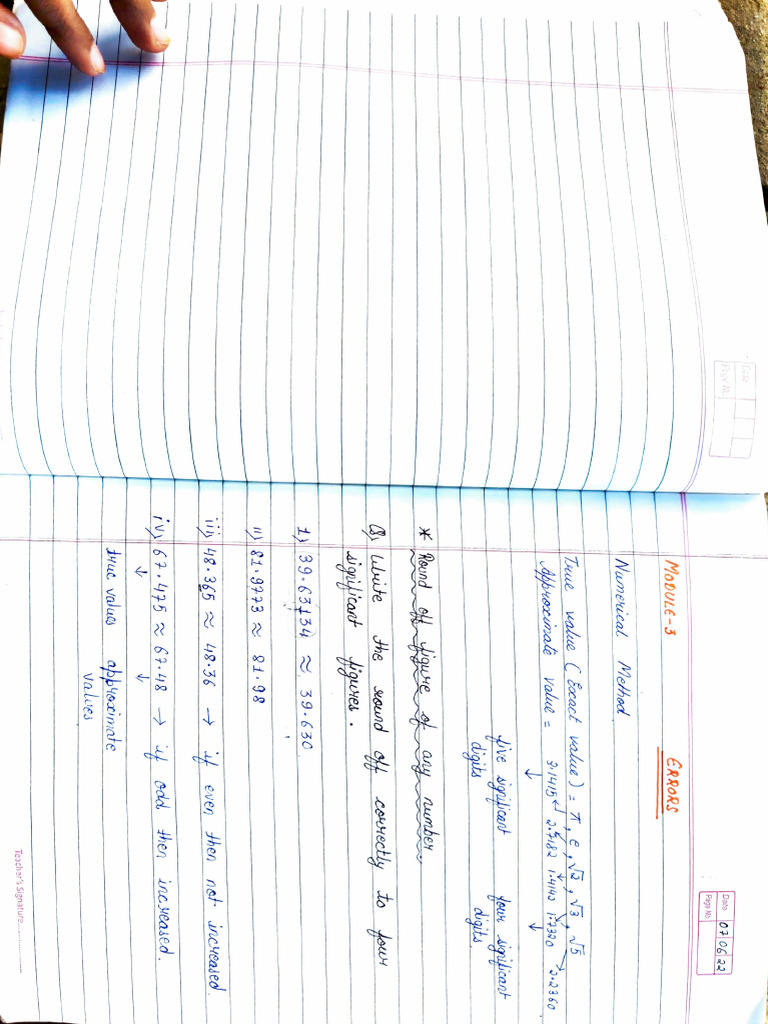 Date 07 06 22
Page No.
MODULE-3 ERRORS
Numerical Method
True value (Exact value) = π, e, √2, √3, √5
Approximate value = 3.1415 2.7182 1.4142 1.7320 2.2360
↓ ↓
five significant digits four significant digits.
* Round off figure of any number.
Q) Write the round off correctly to four
significant figures.
1) 39.63134 ≈ 39.630
ii) 81.9773 ≈ 81.98
iii) 48.365 ≈ 48.36 → if even then not increased.
iv) 67.475 ≈ 67.48 → if odd then increased.
↓ ↓
true values approximate
values
Teacher's Signature
Date
Page No.